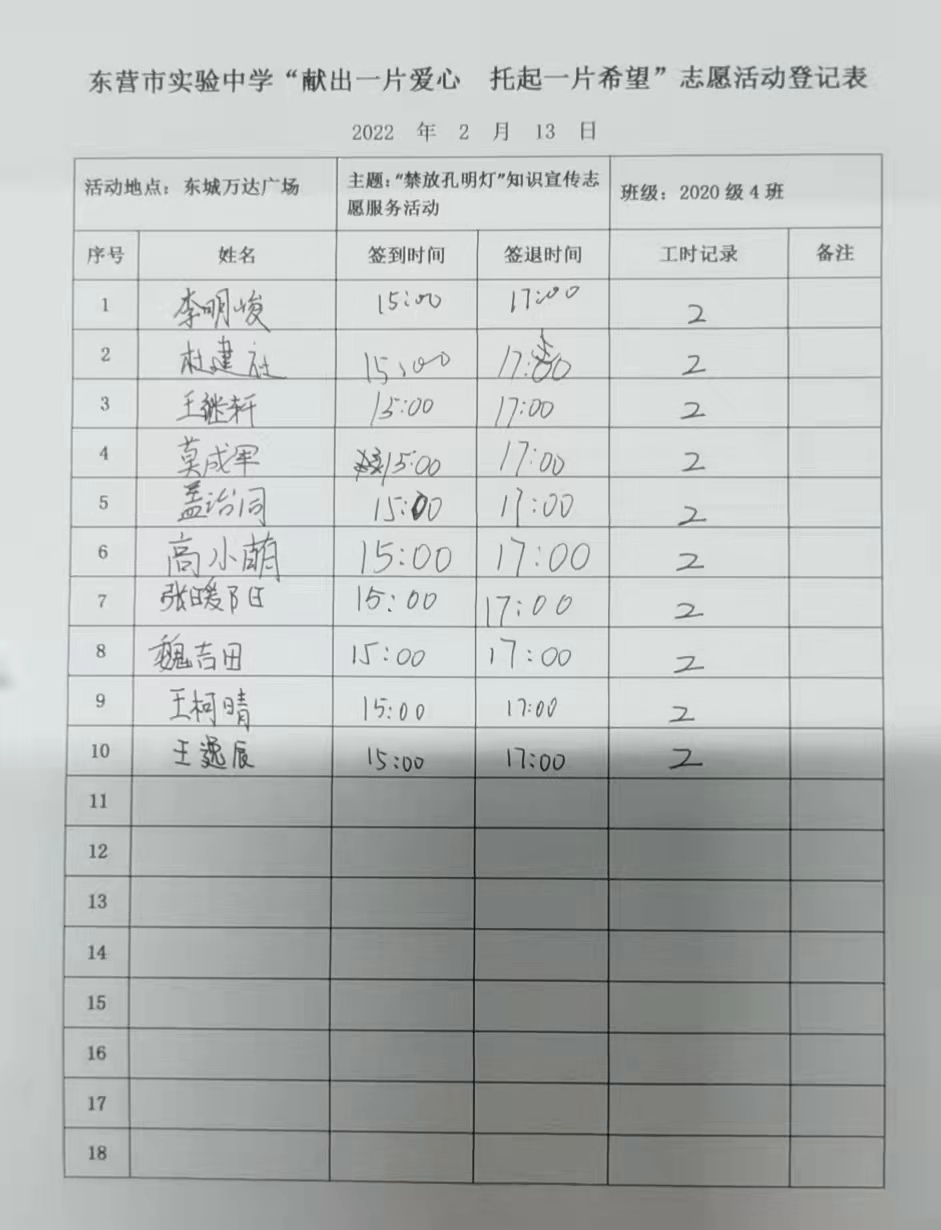 东营市实验中学“献出一片爱心 托起一片希望”志愿活动登记表
2022 年 2 月 13 日
活动地点：东城万达广场 主题：“禁放孔明灯”知识宣传志愿服务活动 班级：2020 级 4 班
序号 姓名 签到时间 签退时间 工时记录 备注
1 李明峻 15:00 17:00 2
2 杜建社 15:00 17:00 2
3 王继轩 15:00 17:00 2
4 莫成军 15:00 17:00 2
5 盖治同 15:00 17:00 2
6 高小萌 15:00 17:00 2
7 张暖阳 15:00 17:00 2
8 魏吉田 15:00 17:00 2
9 王柯晴 15:00 17:00 2
10 王逸辰 15:00 17:00 2
11
12
13
14
15
16
17
18